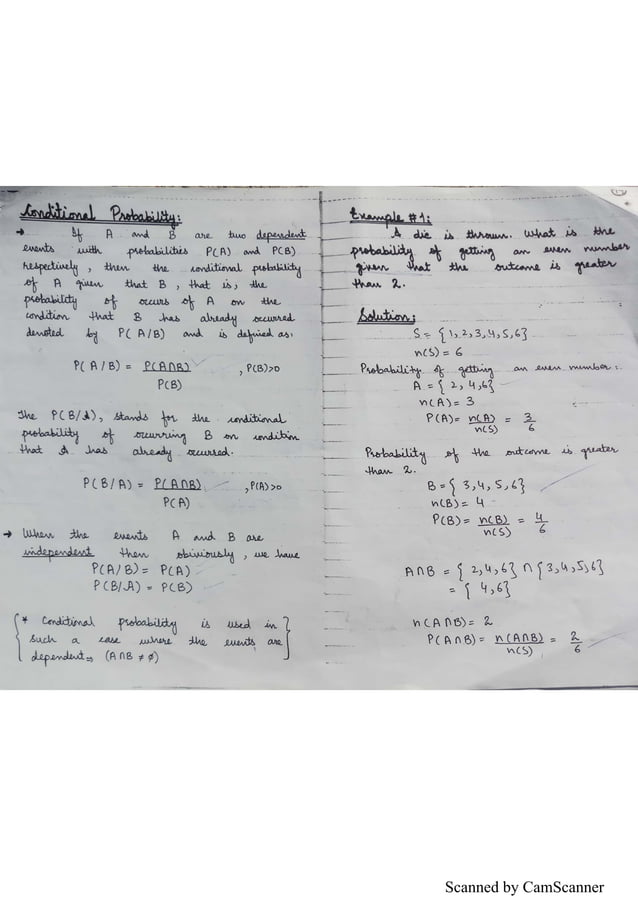 Conditional Probability:
→ If A and B are two dependent
events with probabilities P(A) and P(B)
respectively, then the conditional probability
of A given that B, that is, the
probability of occurs of A on the
condition that B has already occurred
denoted by P(A/B) and is defined as:
P(A/B) = P(A∩B) , P(B)>0
P(B)
The P(B/A), stands for the conditional
probability of occurring B on condition
that A has already occurred.
P(B/A) = P(A∩B) , P(A)>0
P(A)
→ When the events A and B are
independent then obiviously, we have
P(A/B) = P(A)
P(B/A) = P(B)
* Conditional probability is used in
such a case where the events are
dependent ⇒ (A∩B ≠ ∅)
Example #1:
A die is thrown. What is the
probability of getting an even number
given that the outcome is greater
than 2.
Solution:
S = {1,2,3,4,5,6}
n(S) = 6
Probability of getting an even number:
A = {2,4,6}
n(A) = 3
P(A) = n(A)/n(S) = 3/6
Probability of the outcome is greater
than 2.
B = {3,4,5,6}
n(B) = 4
P(B) = n(B)/n(S) = 4/6
A∩B = {2,4,6} ∩ {3,4,5,6}
= {4,6}
n(A∩B) = 2
P(A∩B) = n(A∩B)/n(S) = 2/6
Scanned by CamScanner